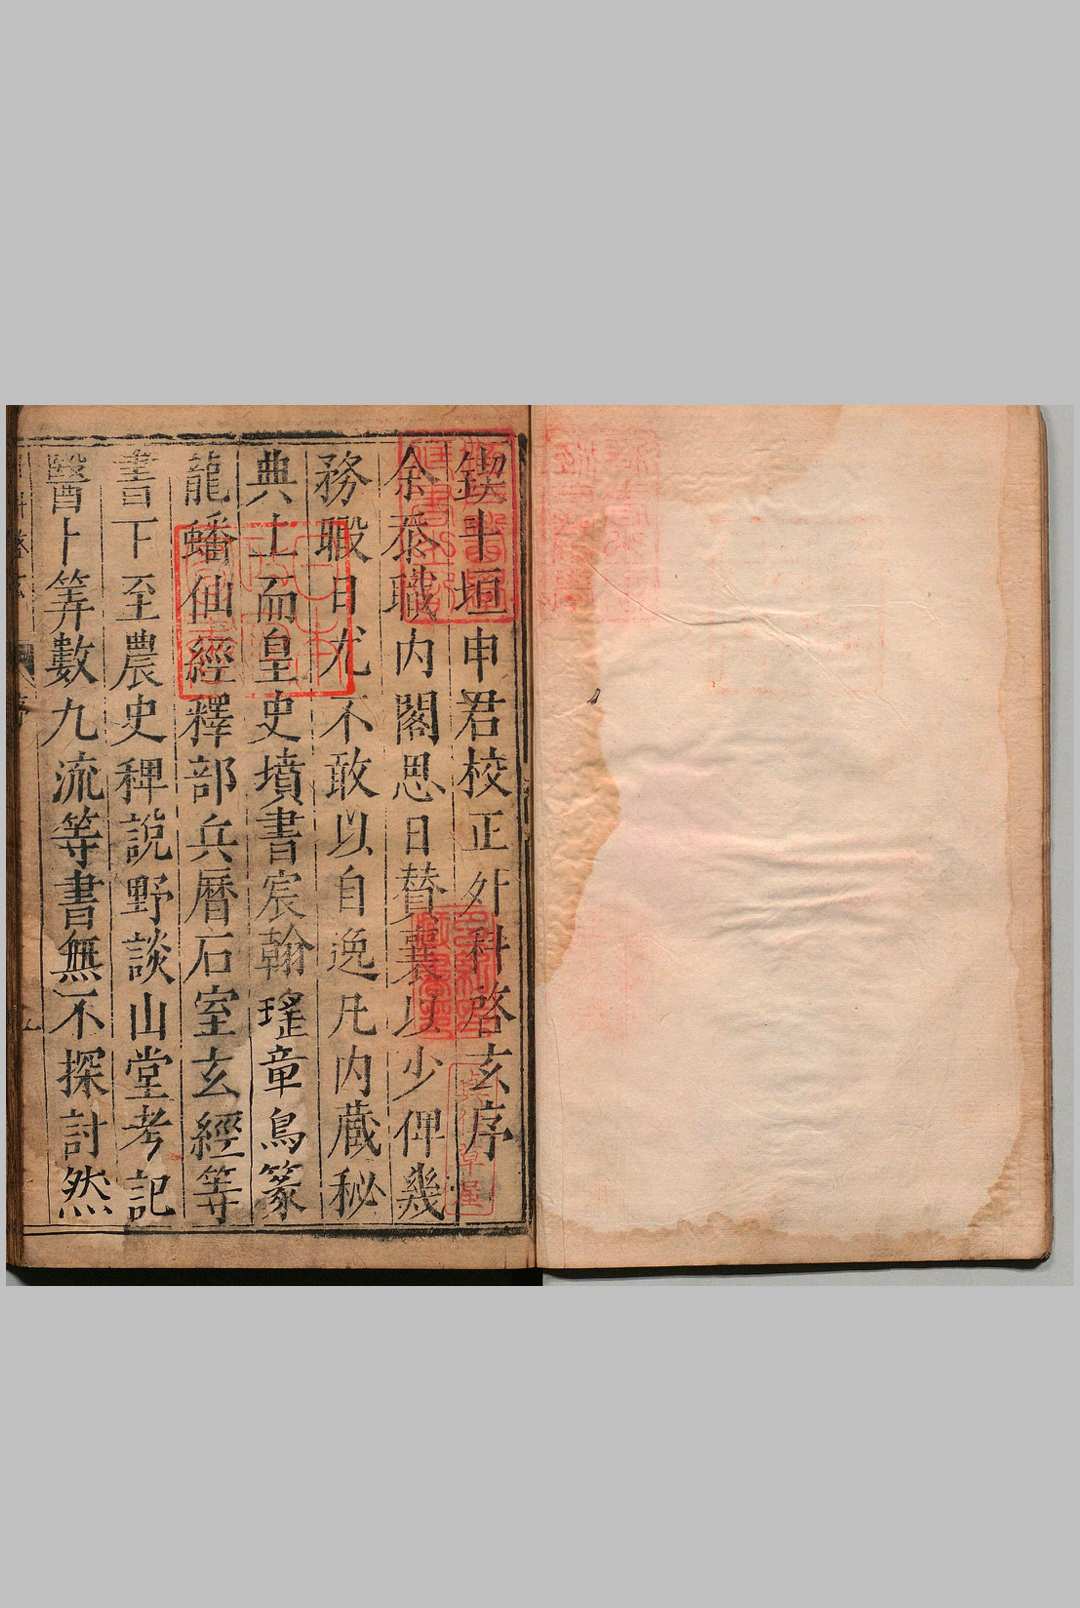 鍥斗垣申君校正外科啓玄序
余忝職内閣思日贊襄以少俾幾
務暇日尤不敢以自逸凡内蔵秘
典上而皇史墳書宸翰瑤章鳥篆
龍蟠仙經釋部兵暦石室玄經等
書下至農史稗說野談山堂考記
醫卜筭數九流等書無不探討然